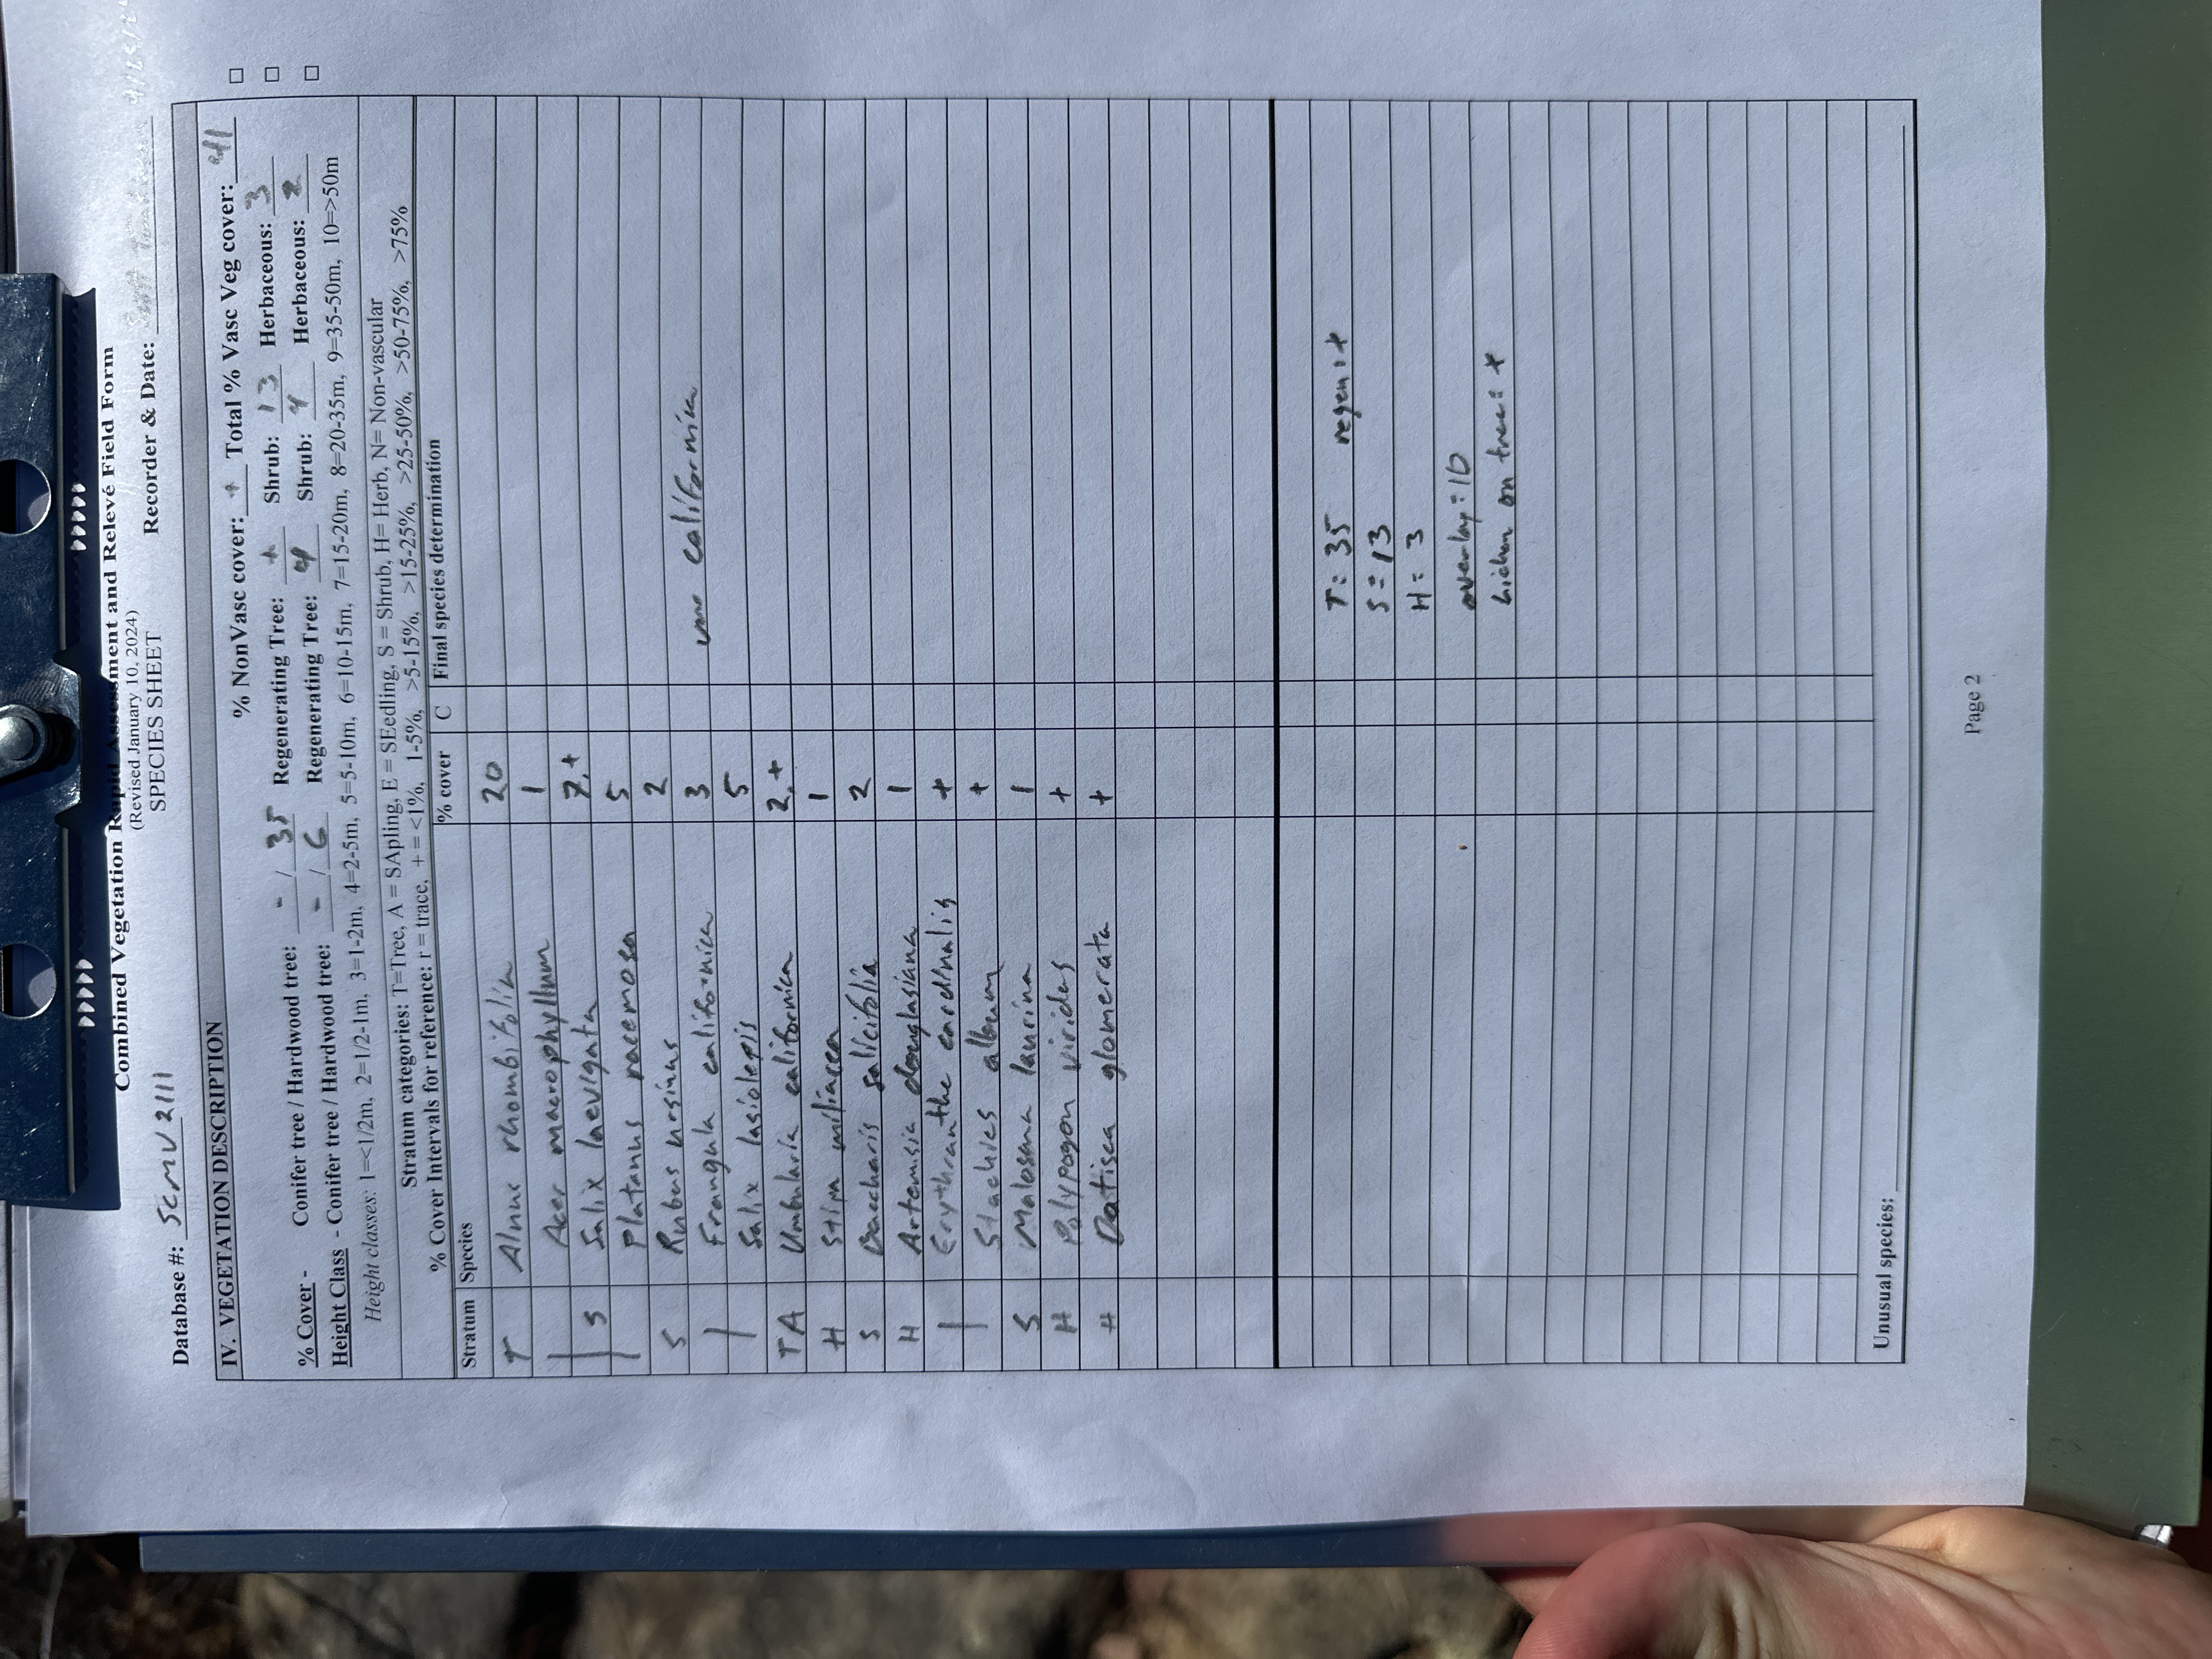 Combined Vegetation Rapid Assessment and Relevé Field Form
(Revised January 10, 2024)
SPECIES SHEET
Database #: SCMV2111 Recorder & Date:
IV. VEGETATION DESCRIPTION
% NonVasc cover: + Total % Vasc Veg cover: 41 □
% Cover - Conifer tree / Hardwood tree: - / 35 Regenerating Tree: + Shrub: 13 Herbaceous: 3 □
Height Class - Conifer tree / Hardwood tree: - / 6 Regenerating Tree: 4 Shrub: 4 Herbaceous: 2 □
Height classes: 1=<1/2m, 2=1/2-1m, 3=1-2m, 4=2-5m, 5=5-10m, 6=10-15m, 7=15-20m, 8=20-35m, 9=35-50m, 10=>50m
Stratum categories: T=Tree, A = SApling, E = SEedling, S = Shrub, H= Herb, N= Non-vascular
% Cover Intervals for reference: r = trace, + = <1%, 1-5%, >5-15%, >15-25%, >25-50%, >50-75%, >75%
Stratum Species % cover C Final species determination
T Alnus rhombifolia 20
| Acer macrophyllum 1
S Salix laevigata 2,+
| Platanus racemosa 5
S Rubus ursinus 2
| Frangula californica 3 californica
| Salix lasiolepis 5
TA Umbularia californica 2,+
H Stipa miliacea 1
S Baccharis salicifolia 2
H Artemisia douglasiana 1
| Erythranthe cardinalis +
| Stachies album +
S Malosma laurina 1
H Polypogon virides +
H Datisca glomerata +
T: 35 regen: +
S = 13
H = 3
overlap: 10
Lichen on trees: +
Unusual species:
Page 2